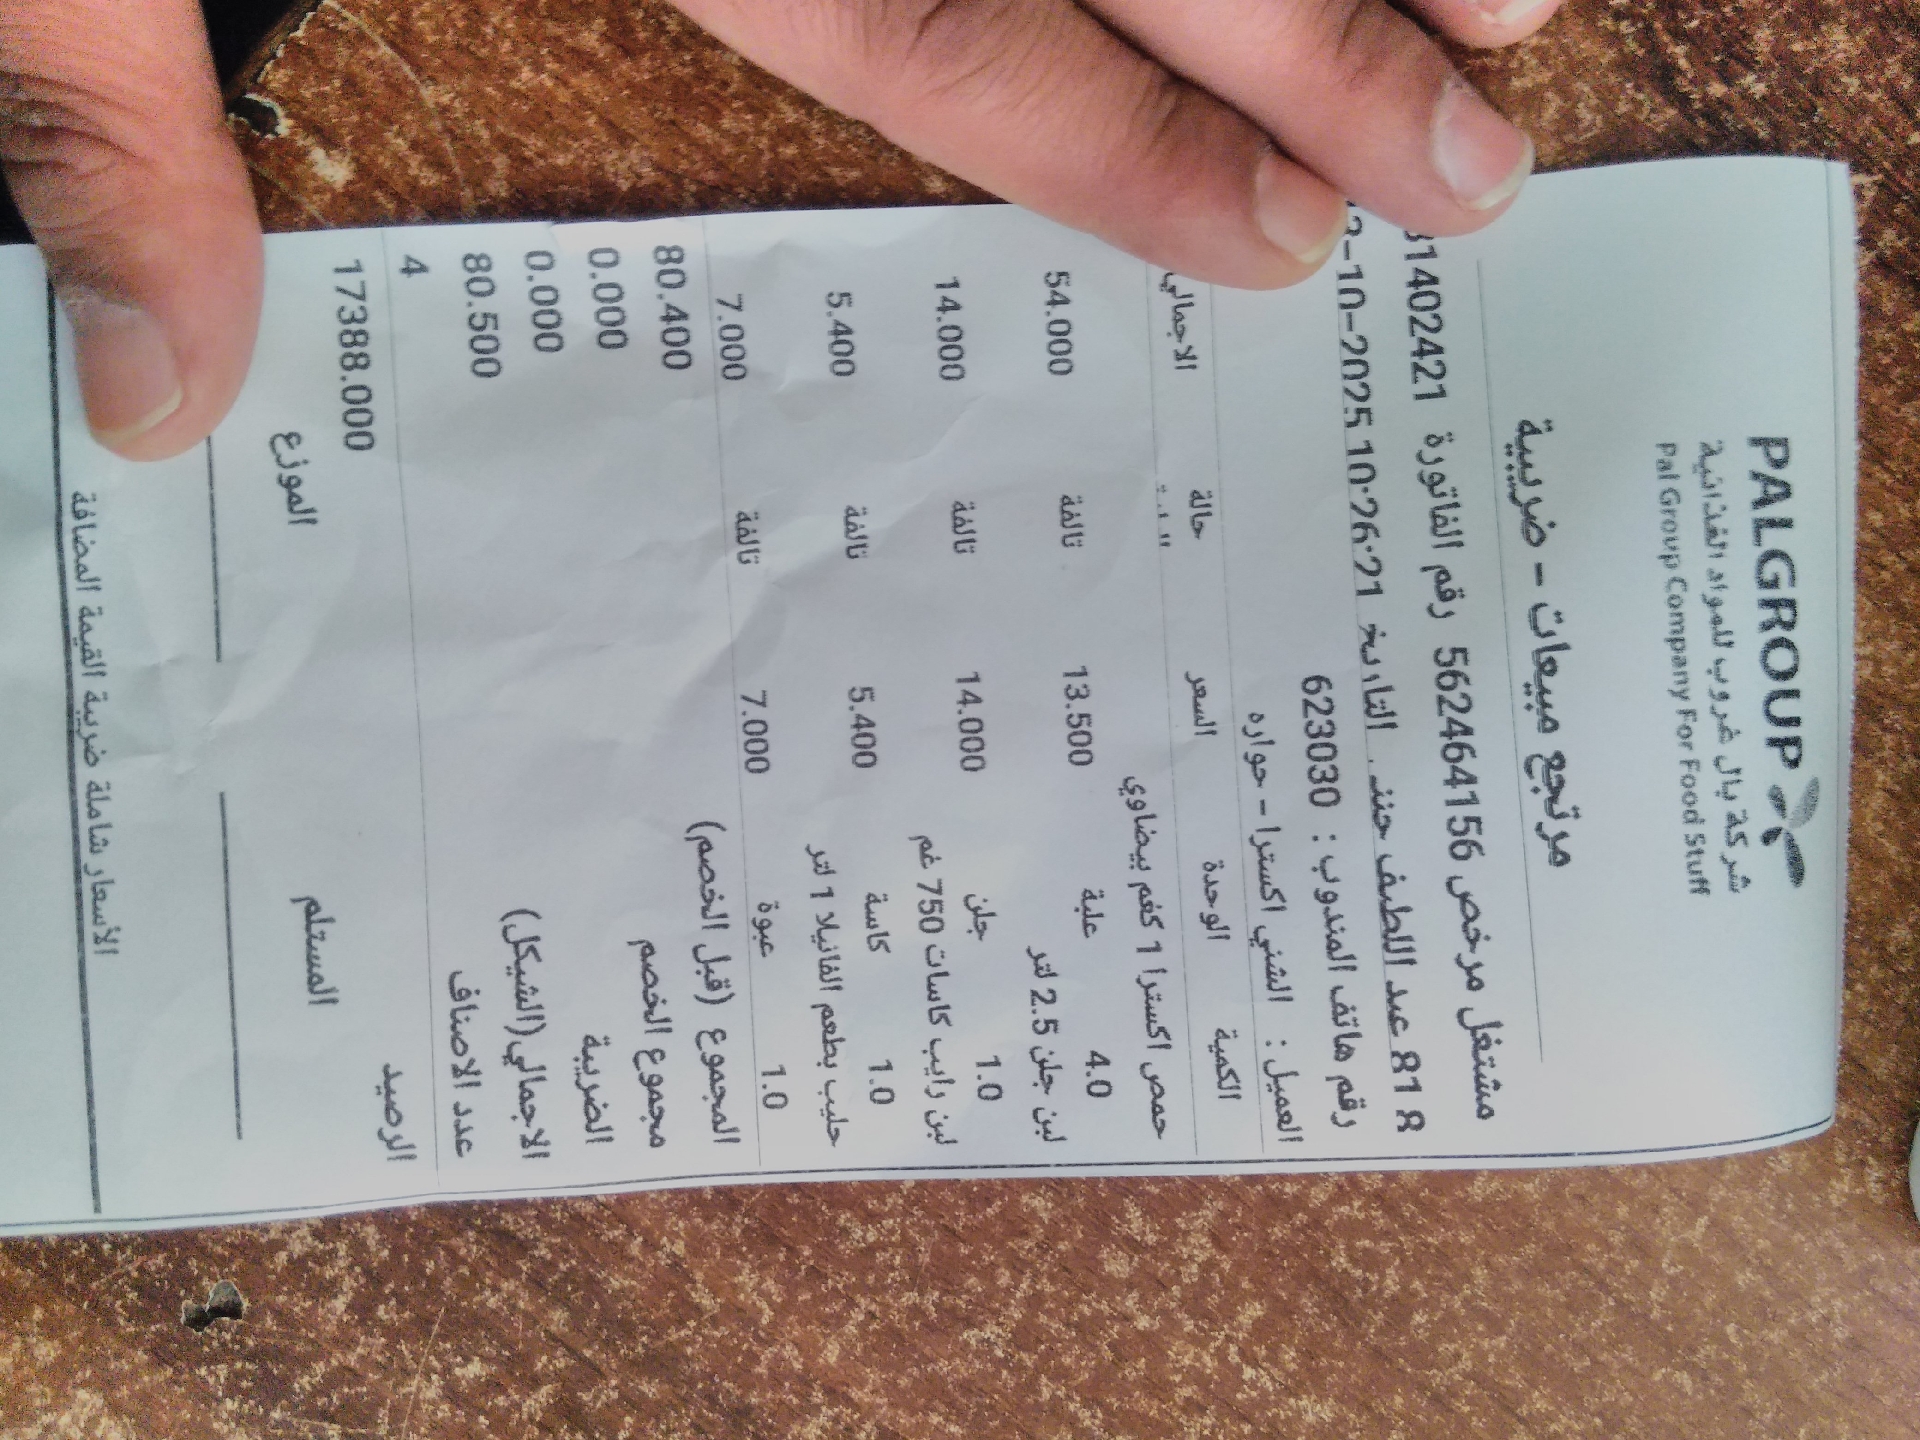 PALGROUP
شركة بال غروب للمواد الغذائية
Pal Group Company For Food Stuff
مرتجع مبيعات - ضريبية
مشتغل مرخص 562464156 رقم الفاتورة 31402421
818 عبد اللطيف التاريخ 10-2025 10:26:21
رقم هاتف المندوب : 623030
العميل : الشني اكسترا - حواره
الكمية الوحدة السعر حالة الاجمالي
حمص اكسترا 1 كغم بيضاوي
4.0 علبة 13.500 تالفة 54.000
لبن جلن 2.5 لتر
1.0 جلن 14.000 تالفة 14.000
لبن رايب كاسات 750 غم
1.0 كاسة 5.400 تالفة 5.400
حليب بطعم الفانيلا 1 لتر
1.0 عبوة 7.000 تالفة 7.000
المجموع (قبل الخصم) 80.400
مجموع الخصم 0.000
الضريبة 0.000
الاجمالي (الشيكل) 80.500
عدد الاصناف 4
الرصيد 17388.000
المستلم الموزع
الأسعار شاملة ضريبة القيمة المضافة